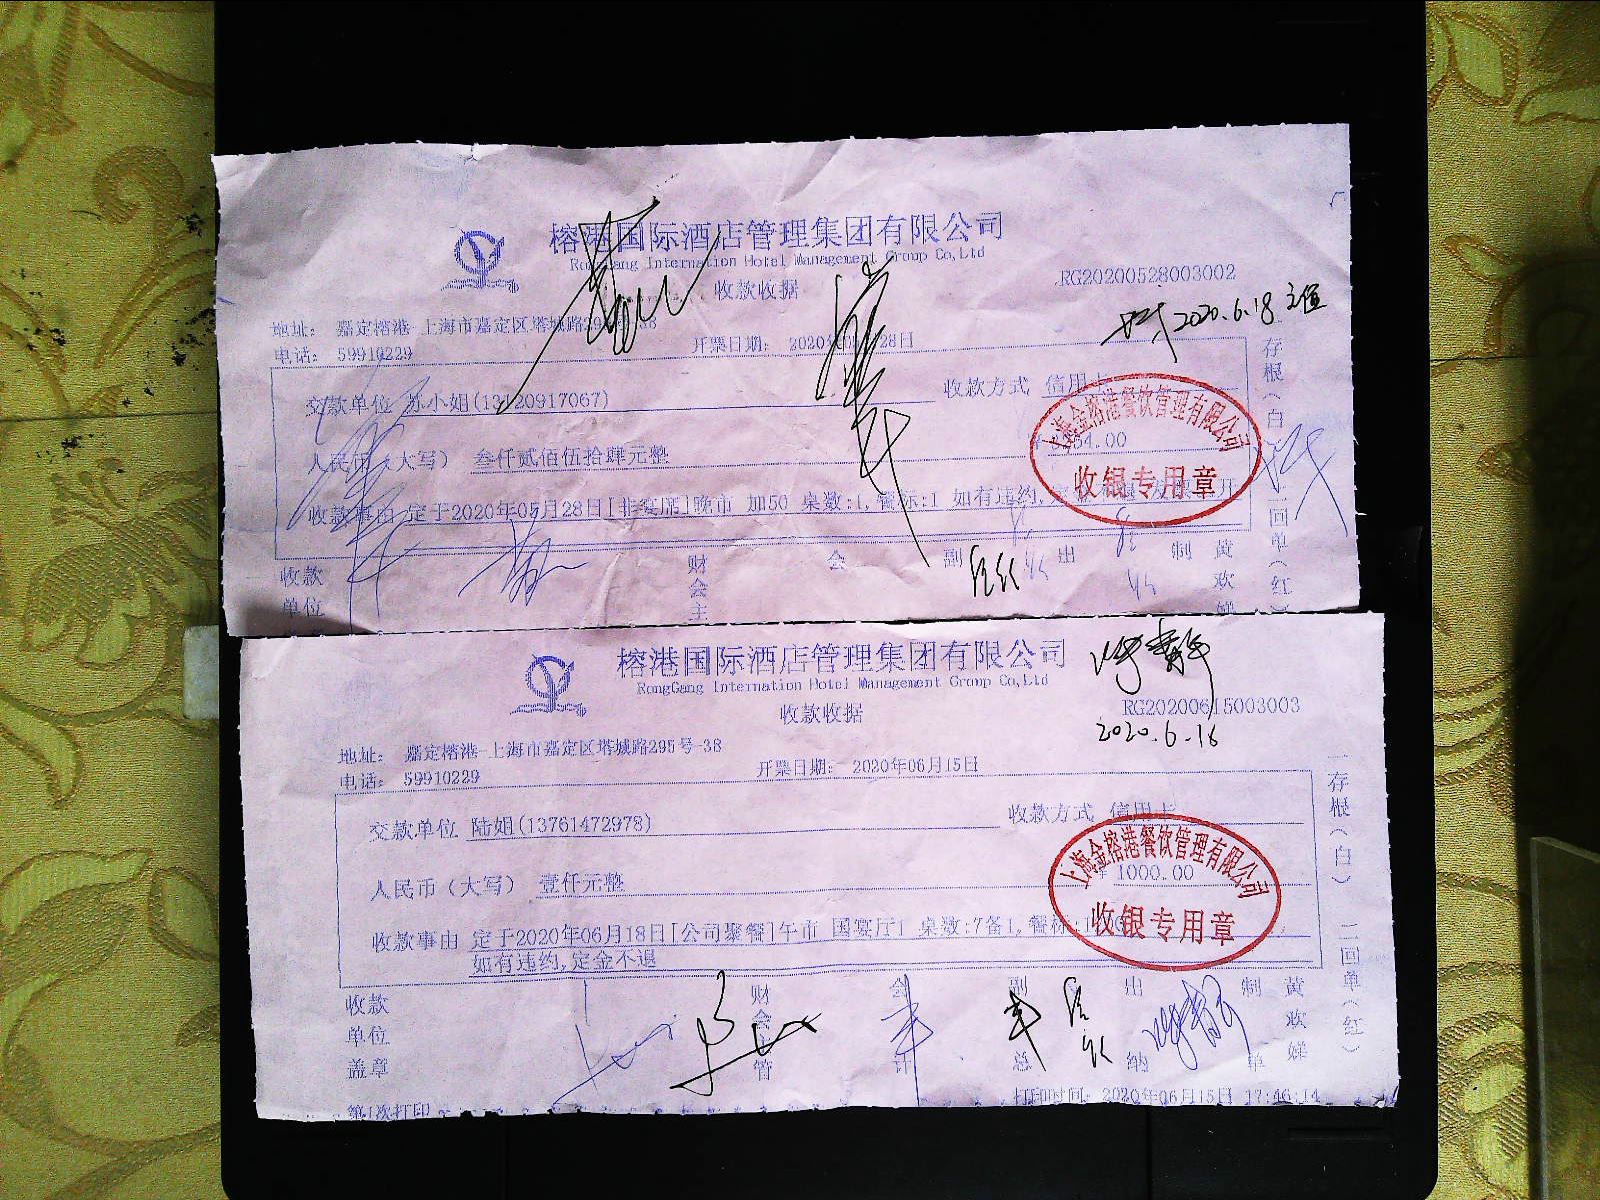 榕港国际酒店管理集团有限公司
RongGang Internation Hotel Management Group Co,Ltd
收款收据
RG20200528003002
2020.6.18
地址: 嘉定榕港-上海市嘉定区塔城路295号-38
电话: 59910229
开票日期: 2020年05月28日
交款单位 苏小姐(13120917067)
收款方式 信用卡
人民币(大写) 叁仟贰佰伍拾肆元整
收款事由 定于2020年05月28日[非宴席]晚市 加50 桌数:1,餐标:1 如有违约,
上海金榕港餐饮管理有限公司
收银专用章
存根(白) 二回单(红)
收款单位
财会主
会
副
出
制
黄欢婵
榕港国际酒店管理集团有限公司
RongGang Internation Hotel Management Group Co,Ltd
收款收据
RG20200615003003
2020.6.16
地址: 嘉定榕港-上海市嘉定区塔城路295号-38
电话: 59910229
开票日期: 2020年06月15日
交款单位 陆姐(13761472978)
收款方式 信用卡
人民币(大写) 壹仟元整
1000.00
收款事由 定于2020年06月18日[公司聚餐]午市 国宴厅1 桌数:7备1,餐标:
如有违约,定金不退
上海金榕港餐饮管理有限公司
收银专用章
一存根(白) 二回单(红)
收款单位盖章
财会主管
会计
副总
出纳
制单
黄欢婵
第1次打印
打印时间: 2020年06月15日 17:46:14